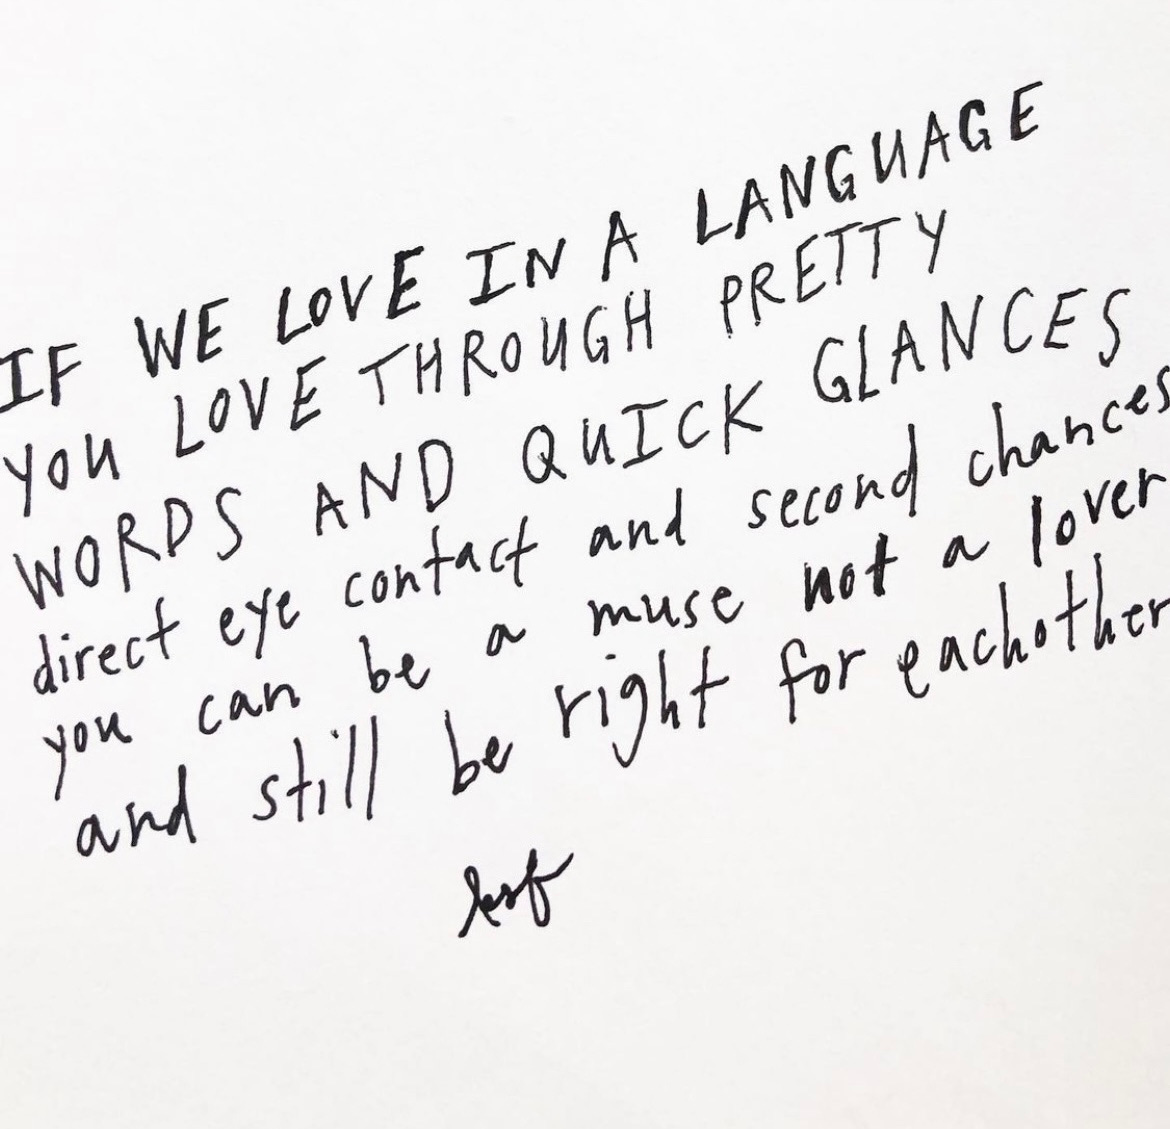 IF WE LOVE IN A LANGUAGE
YOU LOVE THROUGH PRETTY
WORDS AND QUICK GLANCES
direct eye contact and second chances
you can be a muse not a lover
and still be right for eachother